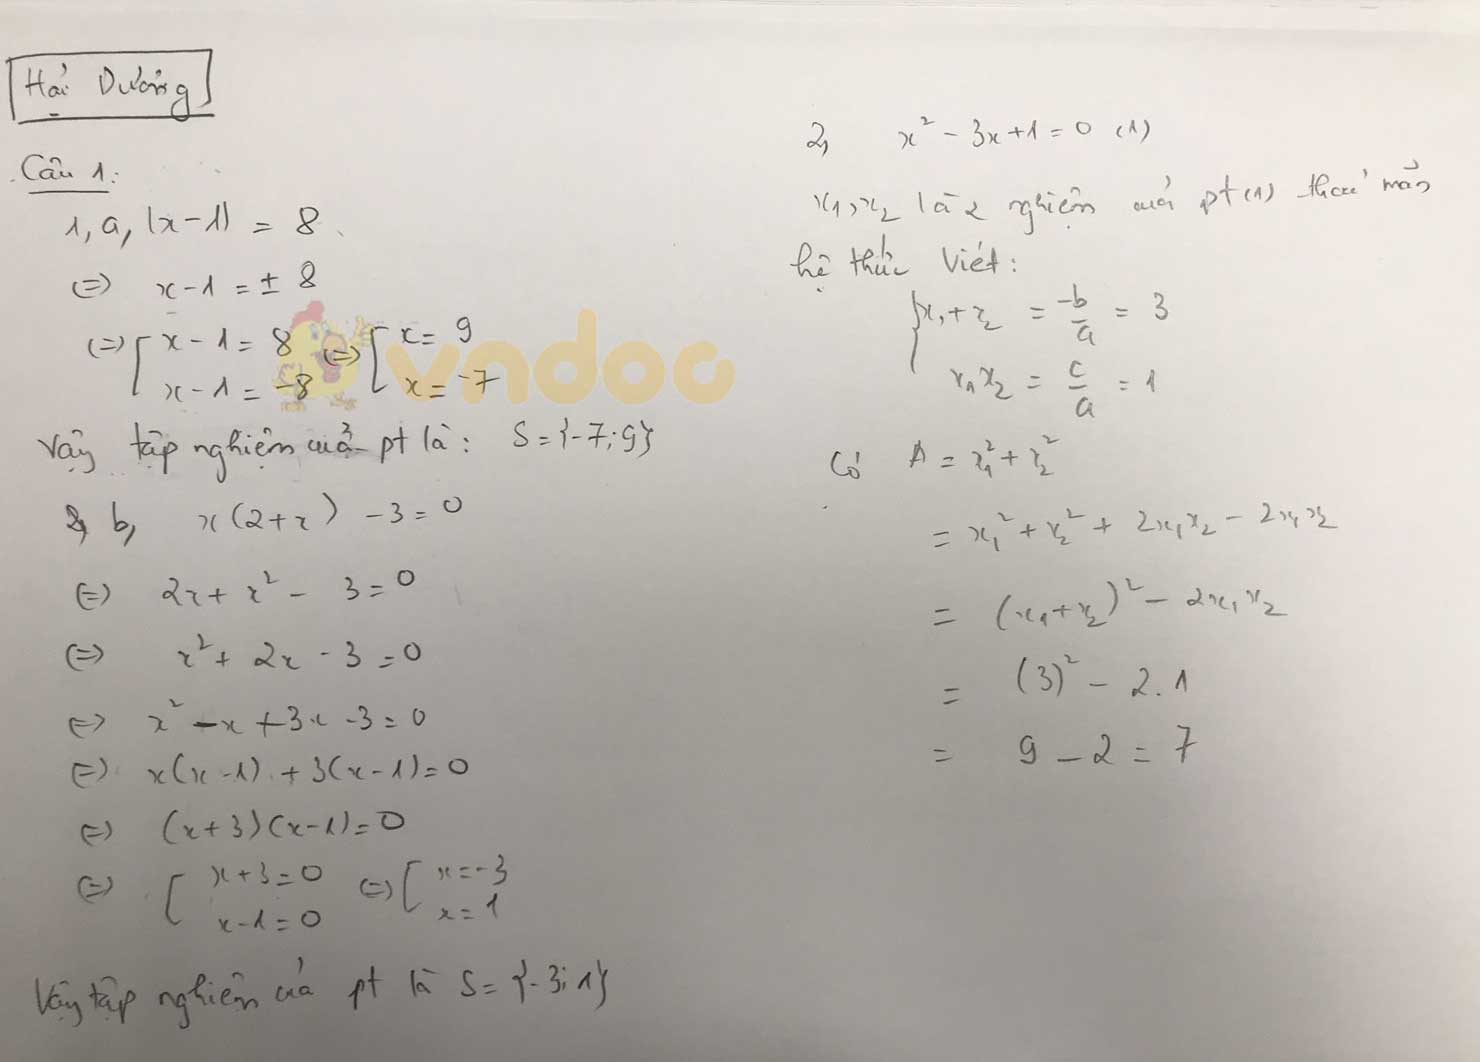 Hải Dương
Câu 1:
1, a, |x-1| = 8
(=) x-1 = ± 8
(=) [ x-1 = 8 (=) [ x = 9
x-1 = -8 x = -7
vndoc
Vậy tập nghiệm của pt là: S = {-7; 9}
b, x(2+x) - 3 = 0
(=) 2x + x² - 3 = 0
(=) x² + 2x - 3 = 0
(=) x² - x + 3x - 3 = 0
(=) x(x-1) + 3(x-1) = 0
(=) (x+3)(x-1) = 0
(=) [ x+3 = 0 (=) [ x = -3
x-1 = 0 x = 1
Vậy tập nghiệm của pt là S = {-3; 1}
2, x² - 3x + 1 = 0 (1)
x₁, x₂ là 2 nghiệm của pt (1) thoả mãn
hệ thức Viét:
{ x₁ + x₂ = -b/a = 3
x₁x₂ = c/a = 1
Có A = x₁² + x₂²
= x₁² + x₂² + 2x₁x₂ - 2x₁x₂
= (x₁+x₂)² - 2x₁x₂
= (3)² - 2.1
= 9 - 2 = 7